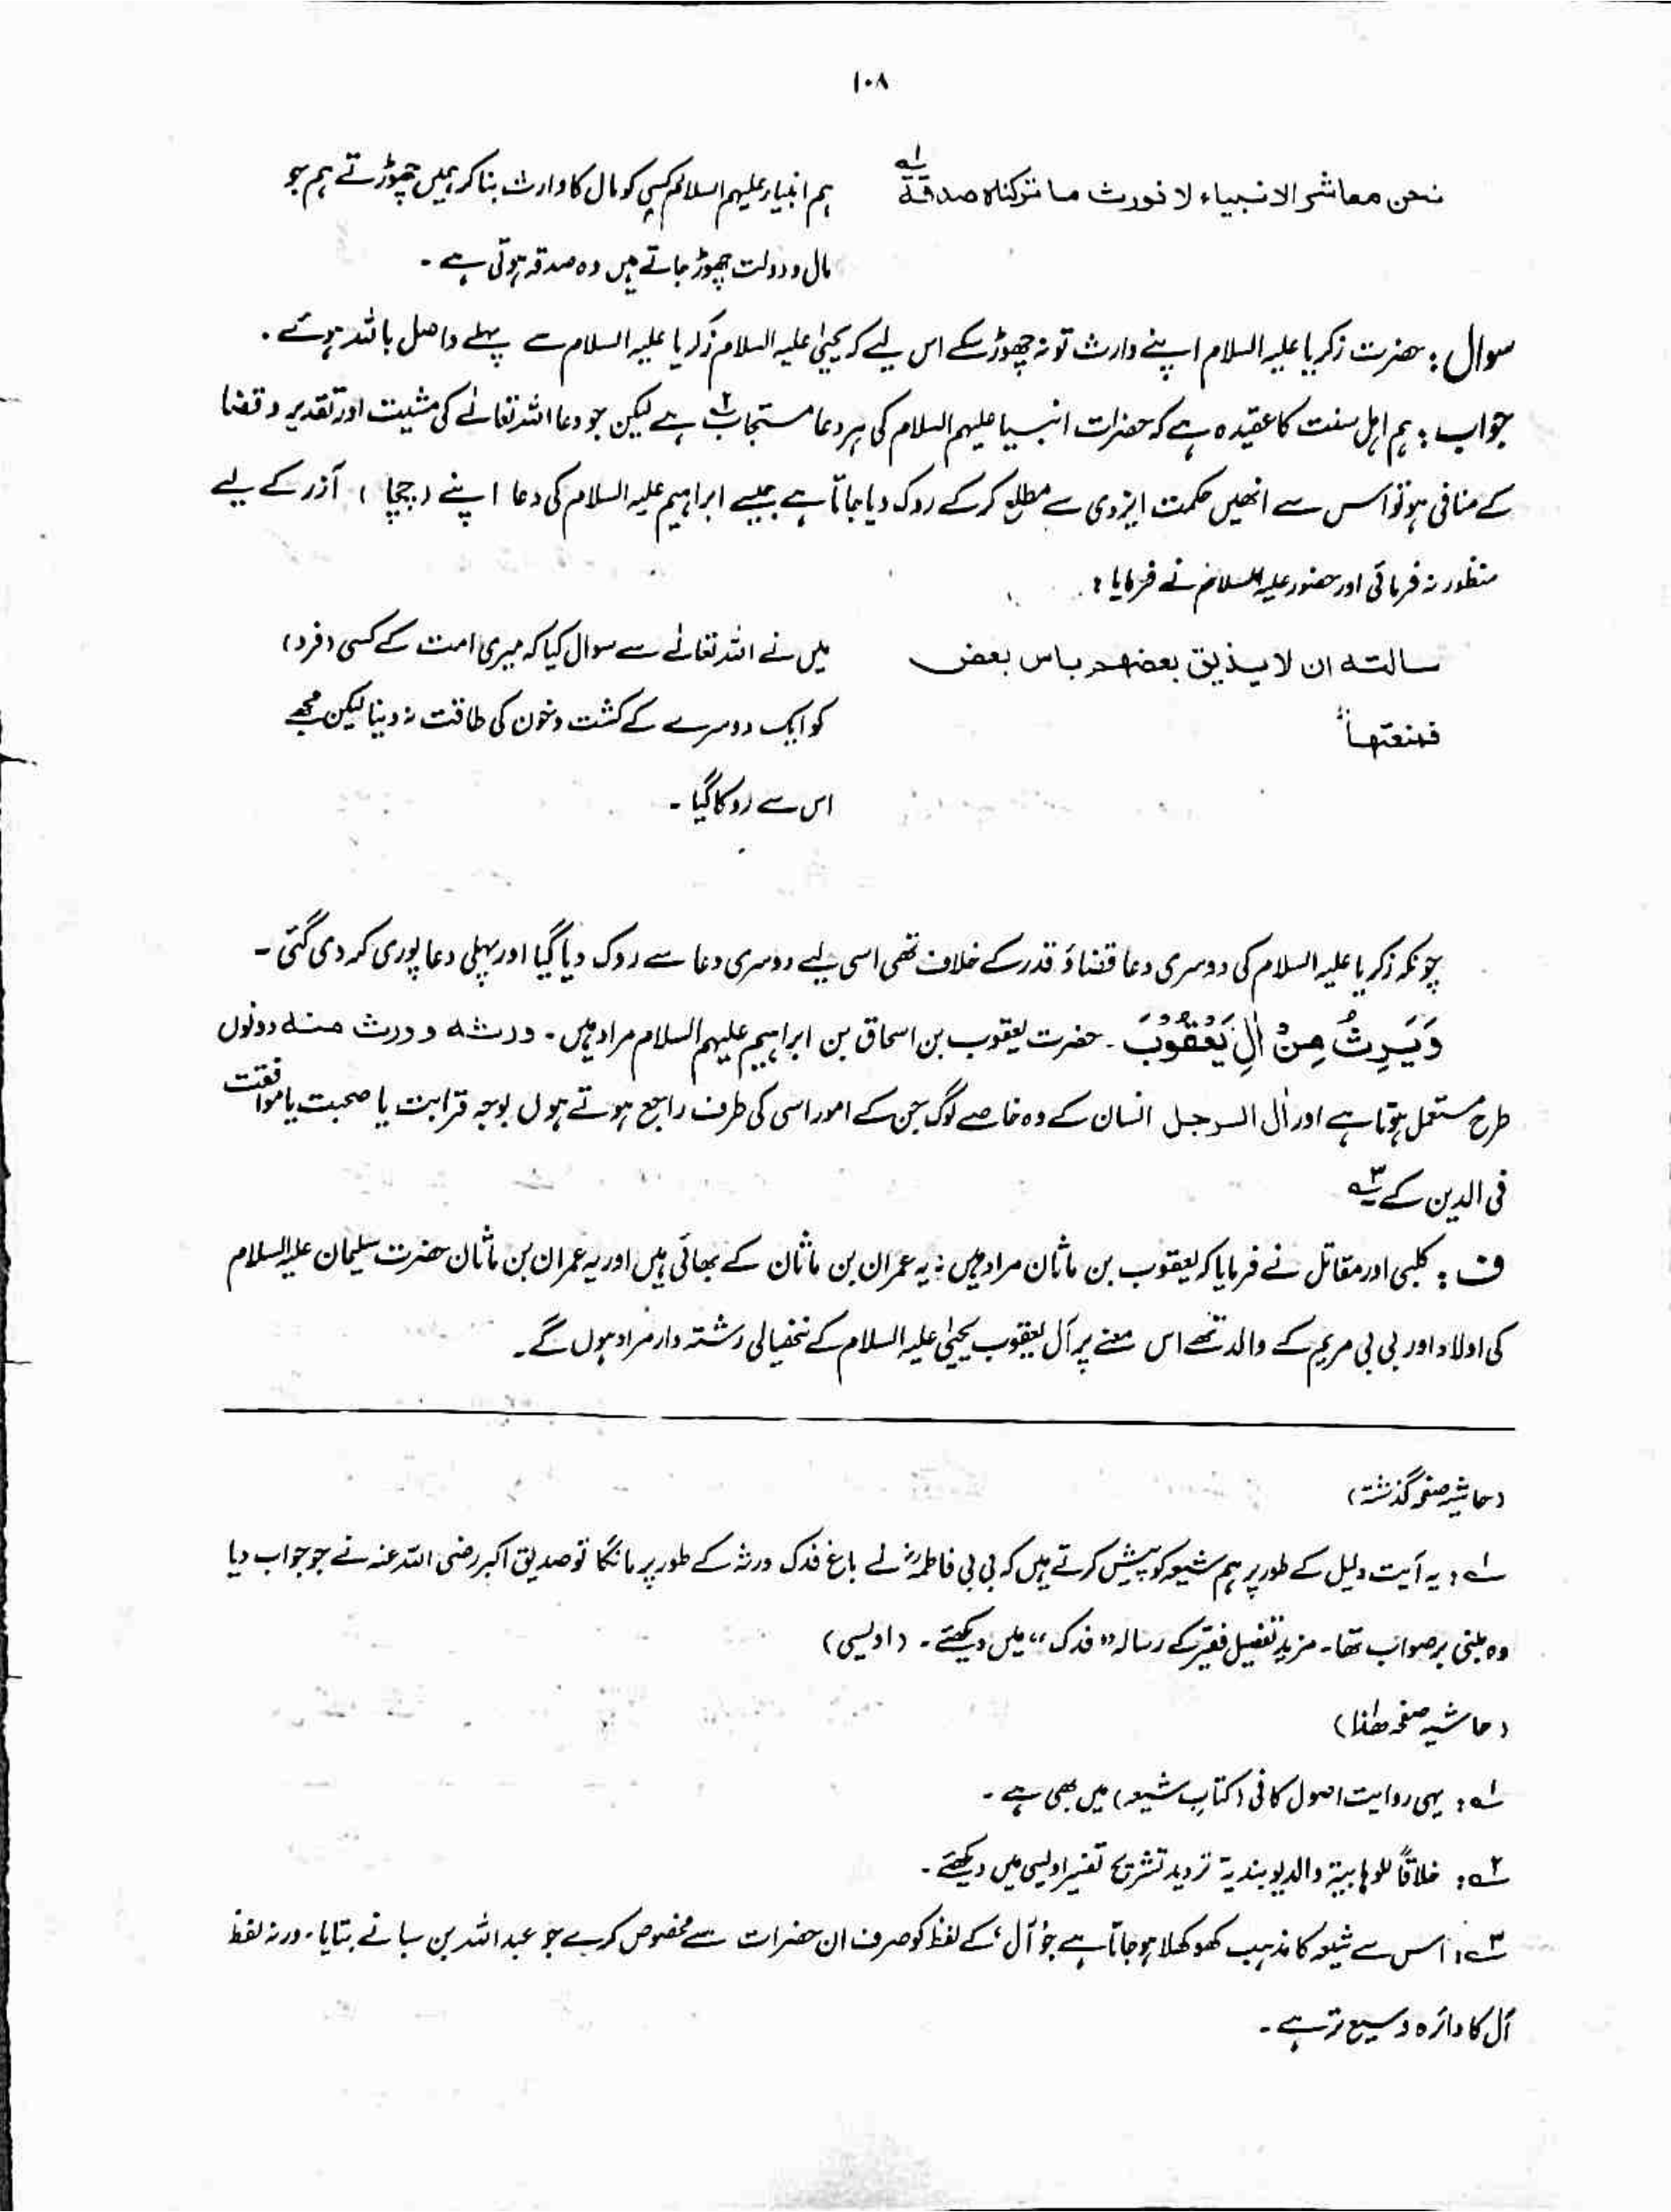 ۱۰۸
نحن معاشر الانبیاء لا نورث ما ترکناہ صدقۃ ۱؎
ہم انبیاء علیہم السلام کسی کو مال کا وارث بنا کر نہیں چھوڑتے ہم جو
مال و دولت چھوڑ جاتے ہیں وہ صدقہ ہوتی ہے ۔
سوال : حضرت زکریا علیہ السلام اپنے وارث تو نہ چھوڑ سکے اس لیے کہ یحییٰ علیہ السلام زکریا علیہ السلام سے پہلے واصل باللہ ہوئے ۔
جواب : ہم اہل سنت کا عقیدہ ہے کہ حضرات انبیا علیہم السلام کی ہر دعا مستجاب ۲ ہے لیکن جو دعا اللہ تعالےٰ کی مشیت اور تقدیر و قضا
کے منافی ہو تو اس سے انھیں حکمت ایزدی سے مطلع کر کے روک دیا جاتا ہے جیسے ابراہیم علیہ السلام کی دعا اپنے (چچا) آزر کے لیے
منظور نہ فرمائی اور حضور علیہ السلام نے فرمایا :
سالتہ ان لا یذیق بعضھم باس بعض
فمنعتہا
میں نے اللہ تعالےٰ سے سوال کیا کہ میری امت کے کسی (فرد)
کو ایک دوسرے کے کشت و خون کی طاقت نہ دینا لیکن مجھے
اس سے روکا گیا ۔
چونکہ زکریا علیہ السلام کی دوسری دعا قضاؤ قدر کے خلاف تھی اسی لیے دوسری دعا سے روک دیا گیا اور پہلی دعا پوری کر دی گئی ۔
وَيَرِثُ مِنْ اٰلِ يَعْقُوْبَ ۔ حضرت یعقوب بن اسحاق بن ابراہیم علیہم السلام مراد ہیں ۔ ورثہ و ورث منہ دونوں
طرح مستعمل ہوتا ہے اور اٰل الرجل انسان کے وہ خاصے لوگ جن کے امور اسی کی طرف راجع ہوتے ہوں بوجہ قرابت یا صحبت یا موافقت
فی الدین کے ۳؎
ف : کلبی اور مقاتل نے فرمایا کہ یعقوب بن ماثان مراد ہیں : یہ عمران بن ماثان کے بھائی ہیں اور یہ عمران بن ماثان حضرت سلیمان علیہ السلام
کی اولاد اور بی بی مریم کے والد تھے اس معنے پر آل یعقوب یحییٰ علیہ السلام کے ننھیالی رشتہ دار مراد ہوں گے ۔
(حاشیہ صفحہ گذشتہ)
۱؎ : یہ آیت دلیل کے طور پر ہم شیعہ کو پیش کرتے ہیں کہ بی بی فاطمہؓ نے باغ فدک ورثہ کے طور پر مانگا تو صدیق اکبر رضی اللہ عنہ نے جو جواب دیا
وہ مبنی برصواب تھا ۔ مزید تفصیل فقیر کے رسالہ "فدک" میں دیکھئے ۔ (اویسی)
(حاشیہ صفحہ ھٰذا)
۱؎ : یہی روایت اصول کافی (کتاب شیعہ) میں بھی ہے ۔
۲؎ : خلافاً للوہابیۃ والدیوبندیۃ تردید تشریح تفسیر اویسی میں دیکھئے ۔
۳؎ : اس سے شیعہ کا مذہب کھوکھلا ہو جاتا ہے جو 'آل' کے لفظ کو صرف ان حضرات سے مخصوص کرے جو عبد اللہ بن سبا نے بتایا ۔ ورنہ لفظ
آل کا دائرہ وسیع تر ہے ۔